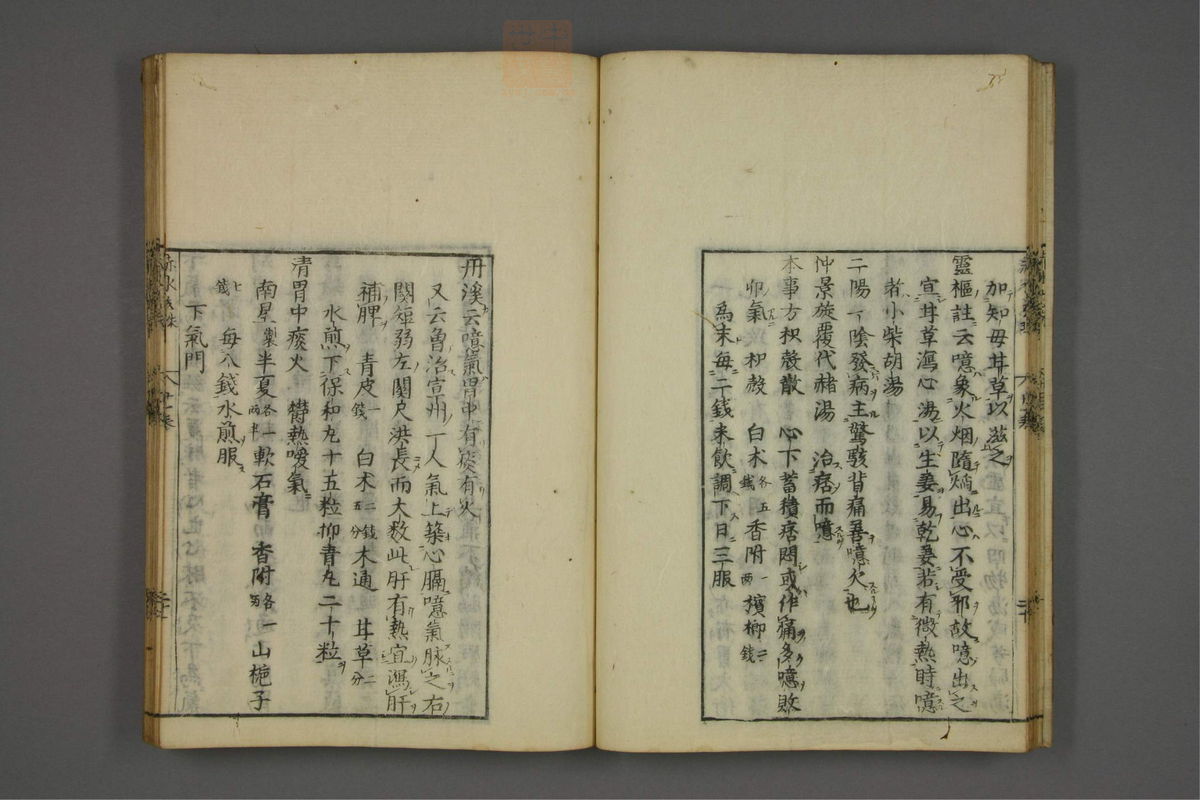 加知母甘草以滋之
靈樞註云噫象火烟隨熖出心不受邪故噫出之
宜甘草瀉心湯以生姜易乾姜若有微熱時噫
者小柴胡湯
二陽一陰發病主驚駭背痛善噫欠也
仲景旋覆代赭湯 治痞而噫
本事方枳殼散 心下蓄積痞悶或作痛多噫敗
卵氣 枳殼 白朮各五錢香附一兩檳榔二錢
為末每二錢米飲調下日三服
丹溪云噫氣胃中有痰有火
又云魯治宣州一人氣上築心膈噫氣脉之右
關短弱左關尺洪長而大数此肝有熱宜瀉肝
補脾 青皮一錢 白朮二錢五分木通 甘草二分
水煎下保和丸十五粒抑青丸二十粒
清胃中痰火 欝熱噯氣
南星製半夏各一兩半軟石膏 香附各一兩山梔子
七錢 每八錢水煎服
下氣門